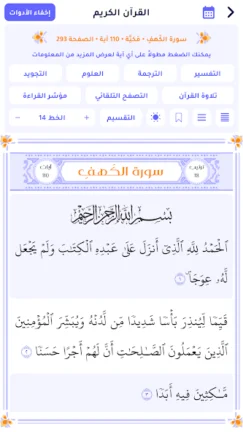 القرآن الكريم
إخفاء الأدوات
سورة الكَهف - مَكيَّة - 110 آية - الصفحة 293
يمكنك الضغط مطولاً على أي آية لعرض المزيد من المعلومات
التفسير
الترجمة
العلوم
التجويد
تلاوة القرآن
التصفح التلقائي
مؤشر القراءة
التقسيم
+ الخط 14 −
ترتيبها 18
سورة الكهف
آياتها 110
بِسْمِ اللَّهِ الرَّحْمَٰنِ الرَّحِيمِ
ٱلْحَمْدُ لِلَّهِ ٱلَّذِىٓ أَنزَلَ عَلَىٰ عَبْدِهِ ٱلْكِتَٰبَ وَلَمْ يَجْعَل
لَّهُۥ عِوَجَاۜ ١
قَيِّمًا لِّيُنذِرَ بَأْسًا شَدِيدًا مِّن لَّدُنْهُ وَيُبَشِّرَ ٱلْمُؤْمِنِينَ
ٱلَّذِينَ يَعْمَلُونَ ٱلصَّٰلِحَٰتِ أَنَّ لَهُمْ أَجْرًا حَسَنًا ٢
مَّٰكِثِينَ فِيهِ أَبَدًا ٣